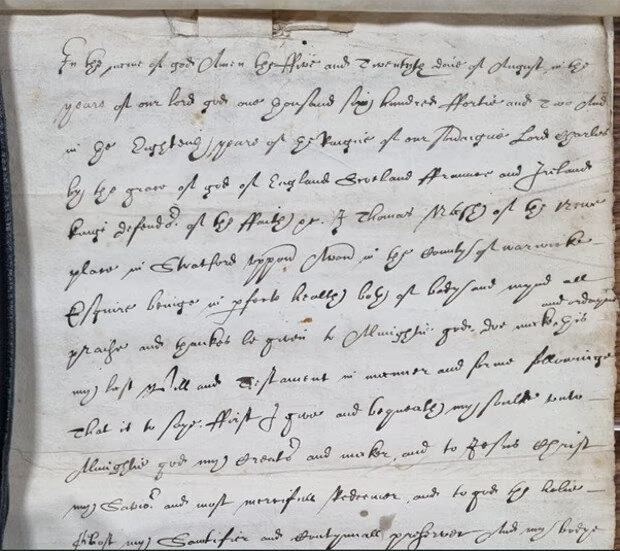 In the name of god Amen the ffive and Twentyth daie of August in the
yeare of our lord god one thousand sixe hundred ffortie and Two And
in the Eighteenth yeare of the Raigne of our Soveraigne Lord Charles
by the grace of god of England Scotland ffraunce and Ireland
kinge defendr of the ffaith &c. I Thomas Nash of the Newe
place in Stratford uppon Avon in the County of warwicke
Esquire beinge in pfecte health both of body and mynd all
praise and thankes be given to Almightie god doe make and ordayne this
my last Will and Testament in manner and forme followinge
That is to saye. ffirst I give and bequeath my soule unto
Almightie god my Creatr and maker, and to Jesus Christ
my Savior and most mercifull Redeemer, and to god the holie
Ghost my Sanctifier and Contynuall preserver And my bodye